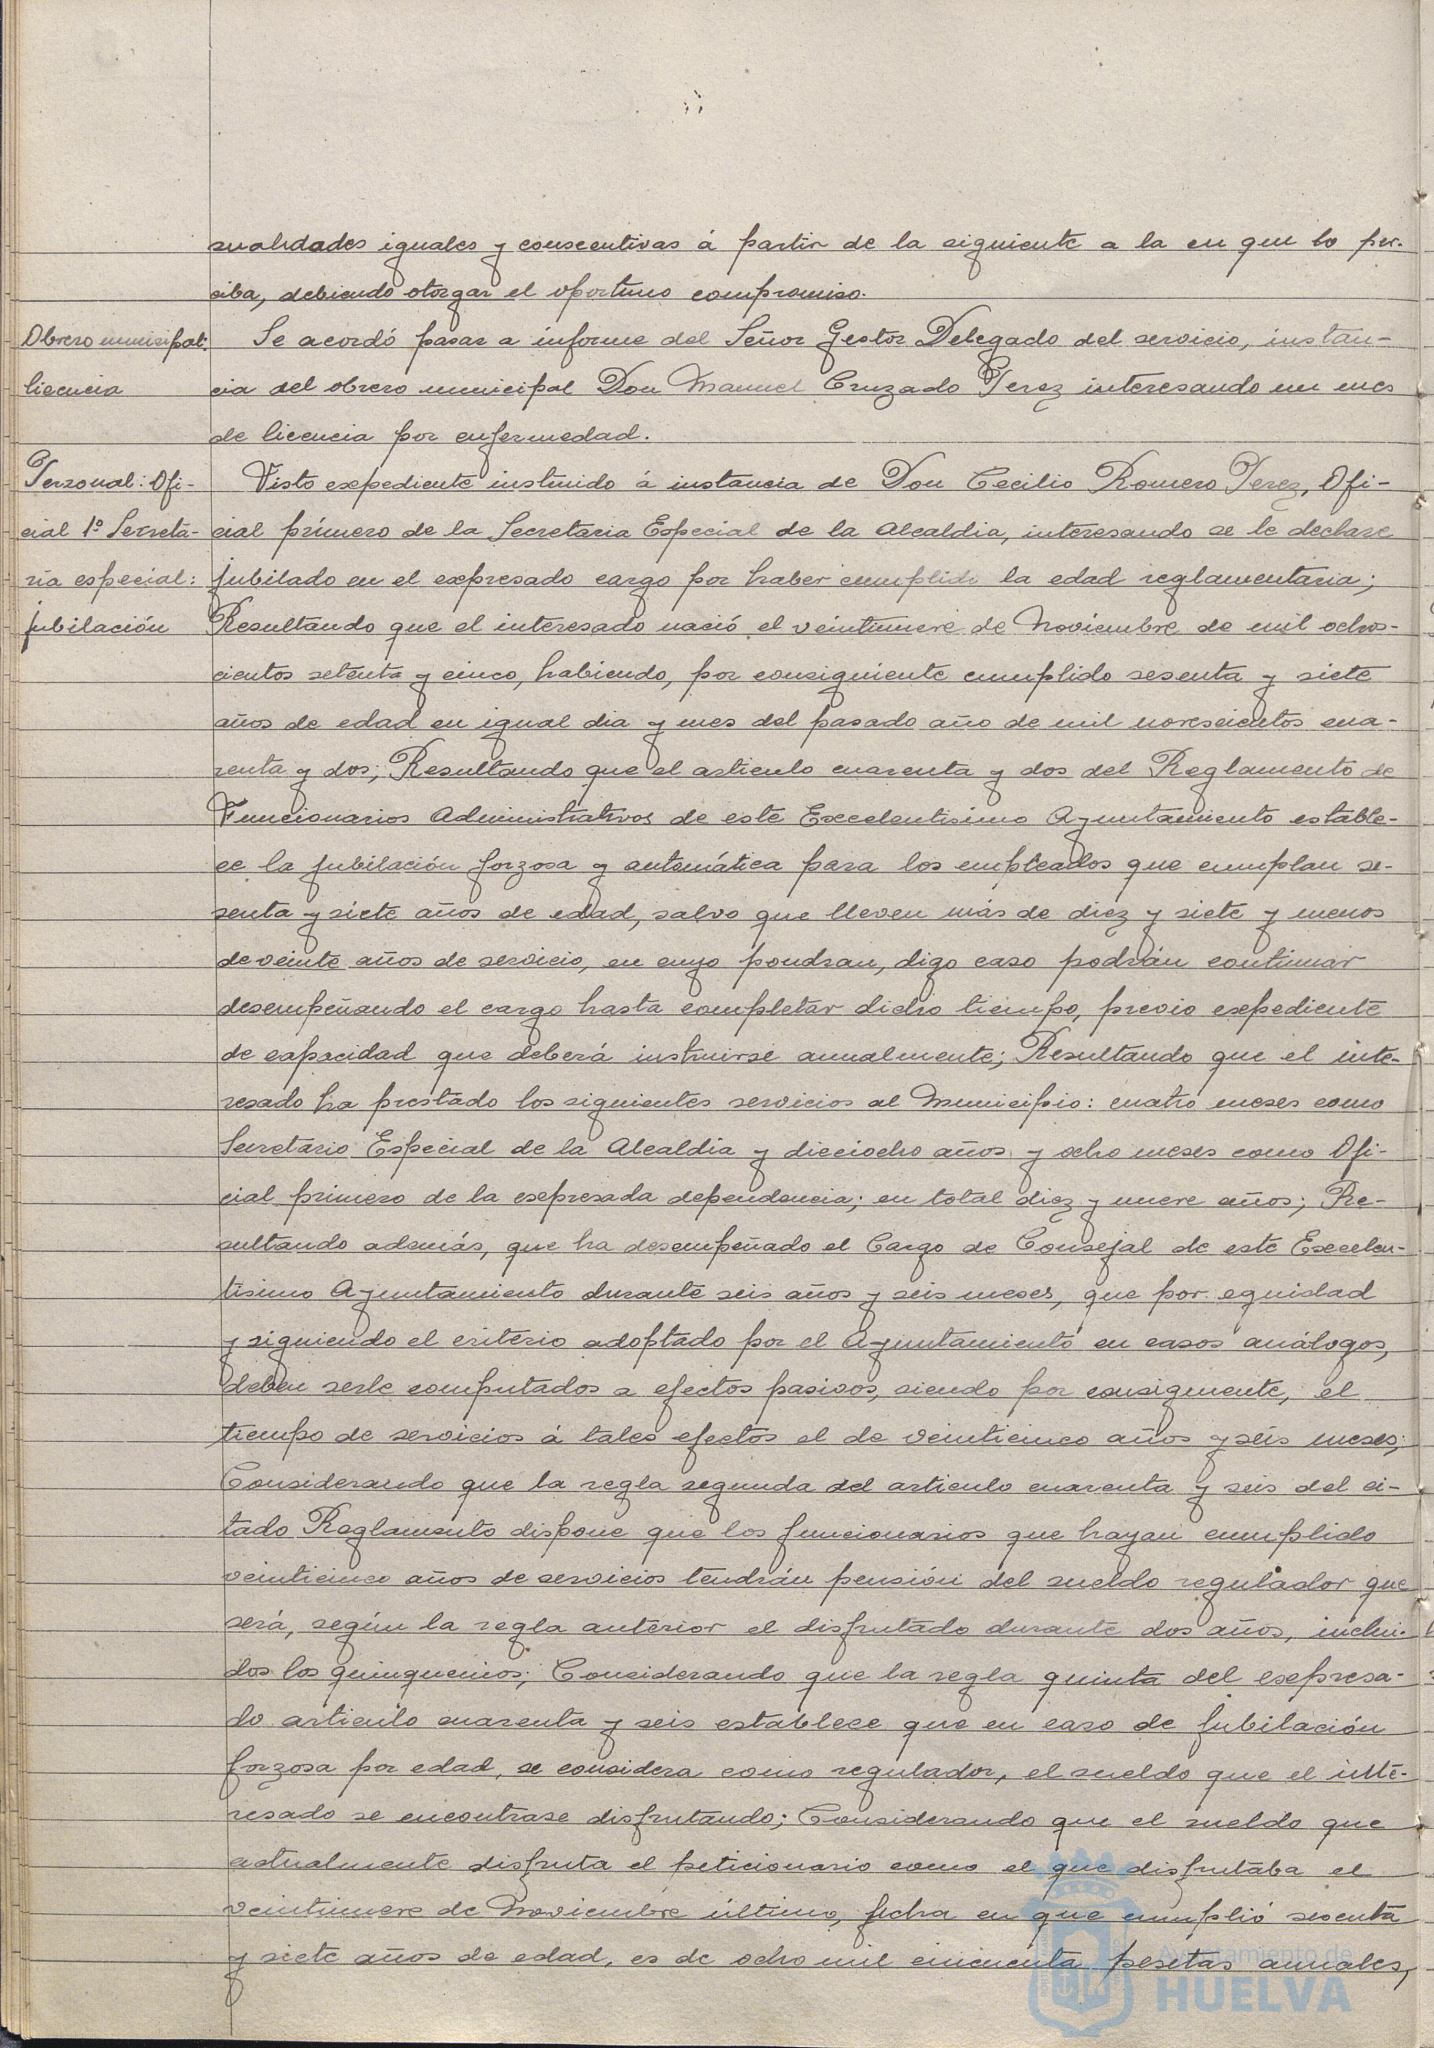 sualidades iguales y consecutivas á partir de la siguiente a la en que lo per-
ciba, debiendo otorgar el oportuno compromiso.
Obrero municipal:
licencia
Se acordó pasar a informe del Señor Gestor Delegado del servicio, instan-
cia del obrero municipal Don Manuel Cruzado Perez interesando un mes
de licencia por enfermedad.
Personal: Ofi-
cial 1º Secreta-
ria especial:
jubilación
Visto expediente instruido á instancia de Don Cecilio Romero Perez, Ofi-
cial primero de la Secretaria Especial de la Alcaldia, interesando se le declare
jubilado en el expresado cargo por haber cumplido la edad reglamentaria;
Resultando que el interesado nació el veintinueve de Noviembre de mil ochos-
cientos setenta y cinco, habiendo, por consiguiente cumplido sesenta y siete
años de edad en igual dia y mes del pasado año de mil novescientos cua-
renta y dos; Resultando que el articulo cuarenta y dos del Reglamento de
Funcionarios Administrativos de este Excelentisimo Ayuntamiento estable-
ce la jubilación forzosa y automática para los empleados que cumplan se-
senta y siete años de edad, salvo que lleven más de diez y siete y menos
de veinte años de servicio, en cuyo poudran, digo caso podrán continuar
desempeñando el cargo hasta completar dicho tiempo, previo expediente
de capacidad que deberá instruirse anualmente; Resultando que el inte-
resado ha prestado los siguientes servicios al Municipio: cuatro meses como
Secretario Especial de la Alcaldia y dieciocho años y ocho meses como Ofi-
cial primero de la expresada dependencia; en total diez y nueve años; Re-
sultando además, que ha desempeñado el Cargo de Consejal de este Excelen-
tisimo Ayuntamiento durante seis años y seis meses, que por equidad
y siguiendo el criterio adoptado por el Ayuntamiento en casos análogos,
deben serle computados a efectos pasivos, siendo por consiguiente, el
tiempo de servicios á tales efectos el de veinticinco años y seis meses;
Considerando que la regla segunda del articulo cuarenta y seis del ci-
tado Reglamento dispone que los funcionarios que hayan cumplido
veinticinco años de servicios tendrán pensión del sueldo regulador que
será, según la regla anterior el disfrutado durante dos años, inclui-
dos los quinquenios; Considerando que la regla quinta del expresa-
do articulo cuarenta y seis establece que en caso de jubilación
forzosa por edad, se considera como regulador, el sueldo que el inte-
resado se encontrase disfrutando; Considerando que el sueldo que
actualmente disfruta el peticionario como el que disfrutaba el
veintinueve de Noviembre último, fecha en que cumplió sesenta
y siete años de edad, es de ocho mil cincuenta pesetas anuales,
Ayuntamiento de
HUELVA